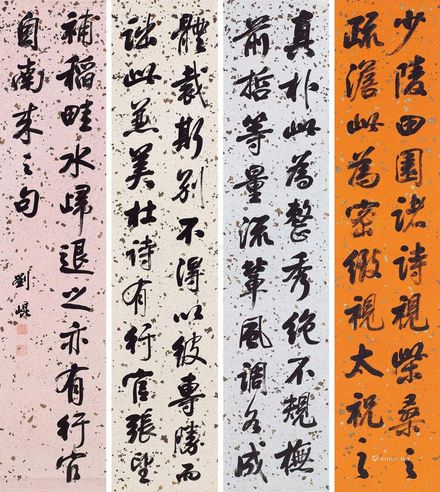 少陵田園諸詩視柴桑之
疏澹此為密緻視太祝之
真朴此為整秀絕不規橅
前哲等量流輩風調各成
體裁斯別不得以彼專勝而
詘此兼美杜詩有行官張望
補稻畦水歸退之亦有行官
自南來之句
劉崐